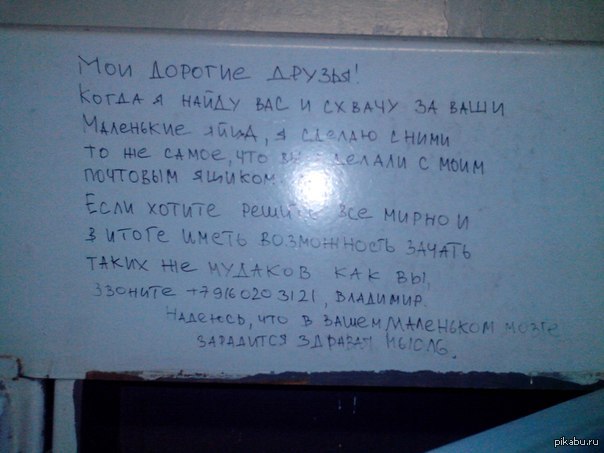 Мои дорогие друзья!
Когда я найду вас и схвачу за ваши
маленькие яйца, я сделаю с ними
то же самое, что вы сделали с моим
почтовым ящиком.
Если хотите решить все мирно и
в итоге иметь возможность зачать
таких же мудаков как вы,
звоните +79160203121, Владимир.
Надеюсь, что в вашем маленьком мозге
зарадится здравая мысль.
pikabu.ru